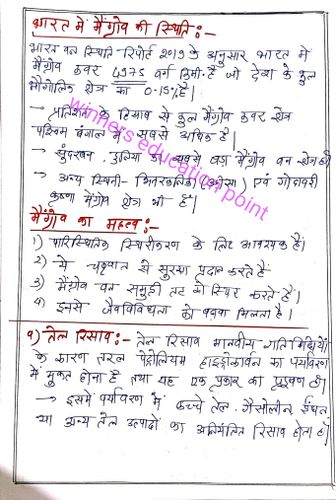 भारत में मैंग्रोव की स्थिति :-
भारत वन स्थिति रिपोर्ट 2019 के अनुसार भारत में
मैंग्रोव कवर 4975 वर्ग किमी. है जो देश के कुल
भौगोलिक क्षेत्र का 0.15% है।
→ प्रतिशत के हिसाब से कुल मैंग्रोव कवर क्षेत्र
पश्चिम बंगाल में सबसे अधिक है।
→ सुंदरबन - दुनिया का सबसे बड़ा मैंग्रोव वन क्षेत्र है
→ अन्य स्थिती - भितरकनिका (ओडिसा) एवं गोदावरी
कृष्णा मैंग्रोव क्षेत्र भी है।
winners education point
मैंग्रोव का महत्व :-
1) पारिस्थितिक स्थिरीकरण के लिए आवश्यक है।
2) ये चक्रवात से सुरक्षा प्रदान करते है
3) मैंग्रोव वन समुद्री तट को स्थिर करते है।
4) इनसे जैवविविधता को बढावा मिलता है।
9) तेल रिसाव :- तेल रिसाव मानवीय गतिविधियों
के कारण तरल पेट्रोलियम हाइड्रोकार्बन का पर्यावरण
में मुक्त होना है तथा यह एक प्रकार का प्रदूषण है।
→ इसमें पर्यावरण में कच्चे तेल, गैसोलीन ईंधन
या अन्य तेल उत्पादों का अनियंत्रित रिसाव होता है।